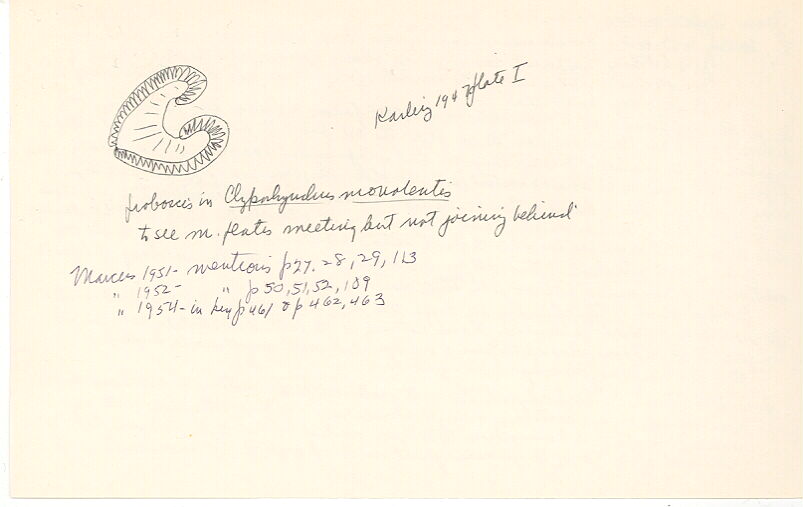 Karling 1947 plate I
proboscis in Clyporhynchus monolentis
to see m. plates meeting but not joining behind
Marcus 1951 - mentions p 27, 28, 29, 113
" 1952 - " p 50, 51, 52, 109
" 1954 - in key p 461 & p 462, 463